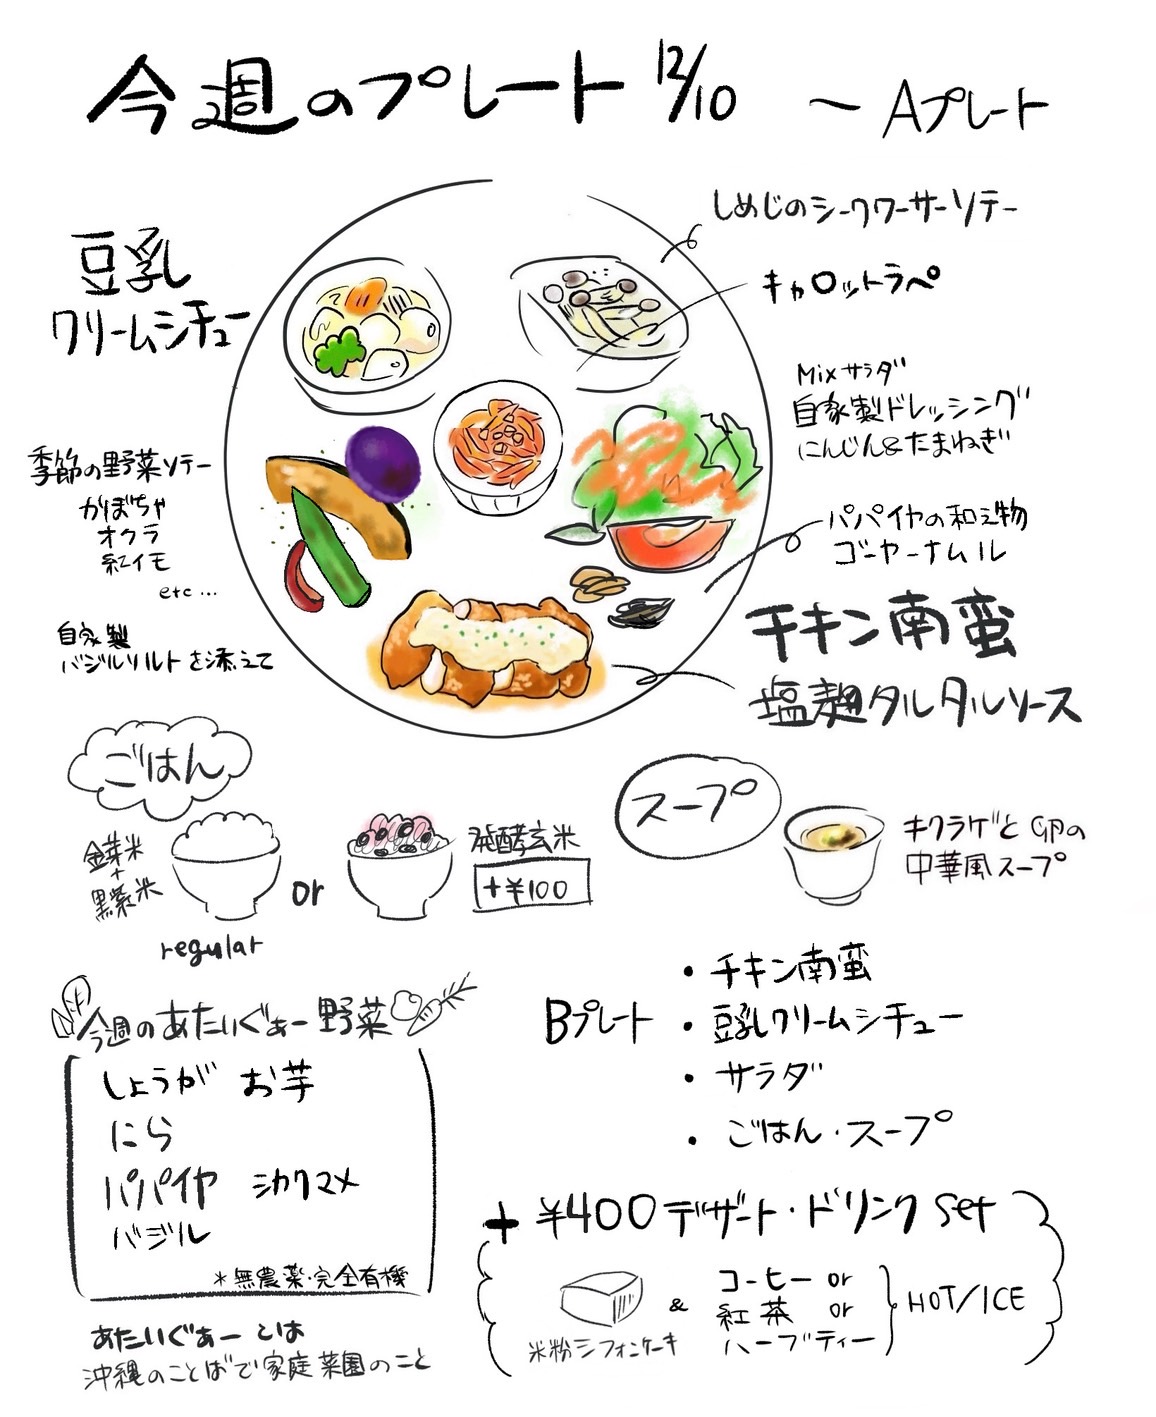 今週のプレート 12/10 〜 Aプレート
しめじのシークワーサーソテー
キャロットラペ
豆乳
クリームシチュー
Mixサラダ
自家製ドレッシング
にんじん&たまねぎ
季節の野菜ソテー
かぼちゃ
オクラ
紅イモ
etc…
パパイヤの和え物
ゴーヤーナムル
自家製
バジルソルトを添えて
チキン南蛮
塩麹タルタルソース
ごはん
金芽米
+
黒紫米
regular
or
発酵玄米
+¥100
スープ
キクラゲと卵の
中華風スープ
今週のあたいぐゎー野菜
しょうが お芋
にら
パパイヤ シカクマメ
バジル
*無農薬・完全有機
あたいぐゎーとは
沖縄のことばで家庭菜園のこと
Bプレート
・チキン南蛮
・豆乳クリームシチュー
・サラダ
・ごはん・スープ
+ ¥400 デザート・ドリンク set
米粉シフォンケーキ
&
コーヒー or
紅茶 or
ハーブティー
HOT/ICE